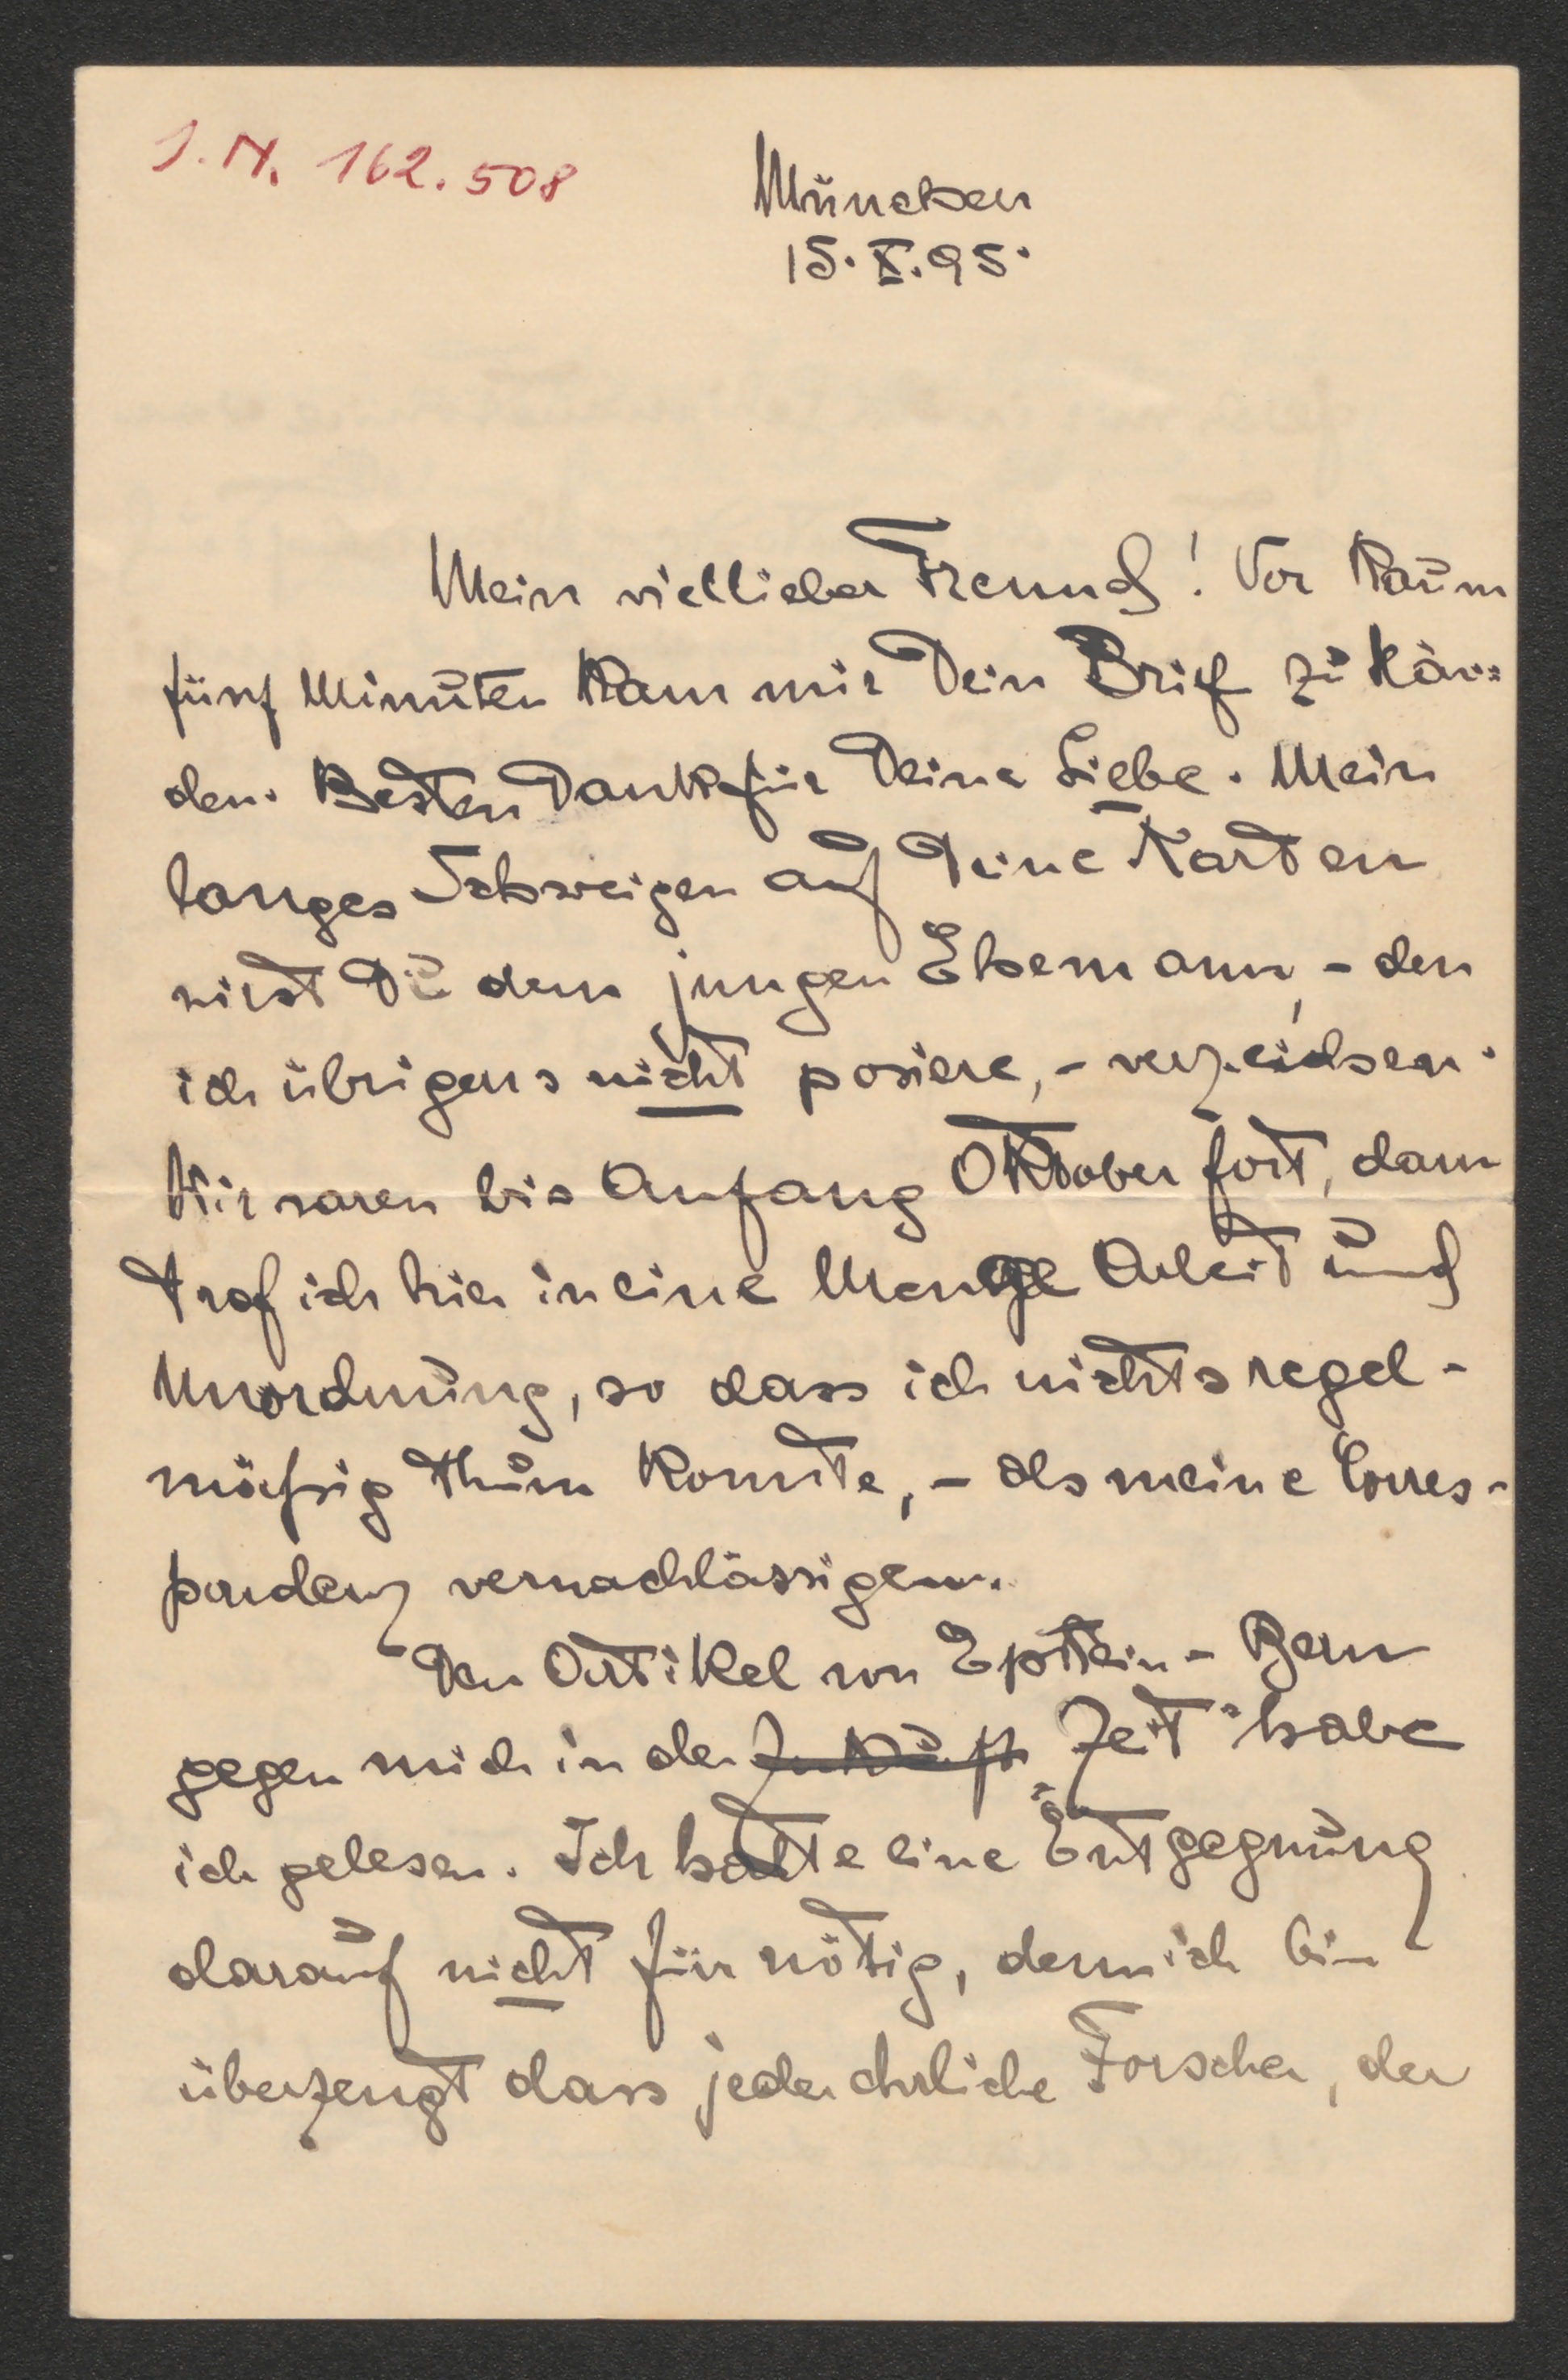 I. N. 162.508
München
15. X. 95.
Mein viellieber Freund! Vor kaum
fünf Minuten kam mir Dein Brief zu Hän=
den. Besten Dank für Deine Liebe. Mein
langes Schweigen auf Deine Karten
wirst Du dem jungen Ehemann, - den
ich übrigens nicht posiere, - verzeihen.
Wir waren bis Anfang Oktober fort, dann
traf ich hier in eine Menge Arbeit und
Unordnung, so dass ich nichts regel-
mäßig thun konnte, - als meine Corres-
pondenz vernachlässigen.
Den Artikel von Epstein - Bern
gegen mich in der Zukunft „Zeit“ habe
ich gelesen. Ich halte eine Entgegnung
darauf nicht für nötig, denn ich bin
überzeugt dass jeder ehrliche Forscher, der